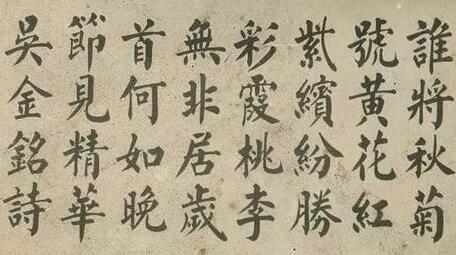 誰將秋菊
號黃花紅
紫繽紛勝
彩霞桃李
無非居歲
首何如晚
節見精華
吳金銘詩